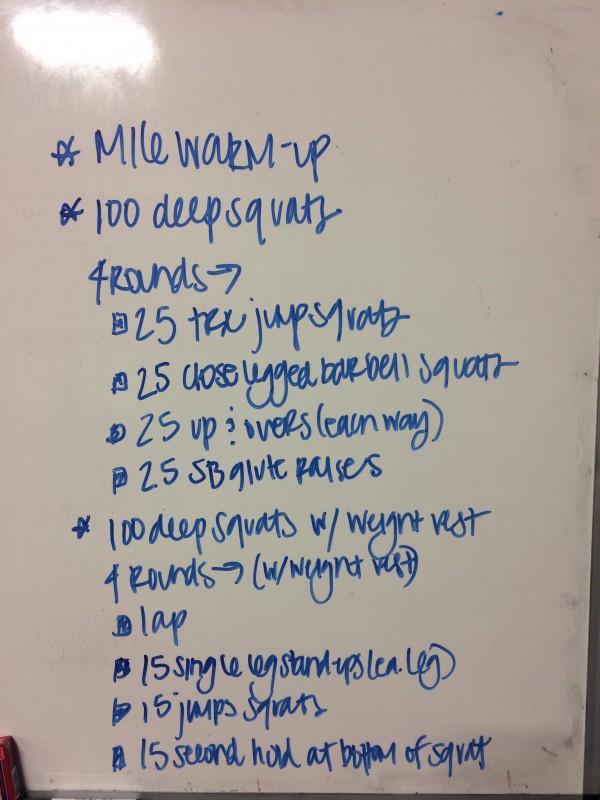 * Mile warm-up
* 100 deep squats
4 rounds →
25 TRX jump squats
25 close legged barbell squats
25 up & overs (each way)
25 SB glute raisers
* 100 deep squats w/ weight vest
4 rounds → (w/ weight vest)
1 lap
15 single leg stand-ups (ea. leg)
15 jumps squats
15 second hold at bottom of squat